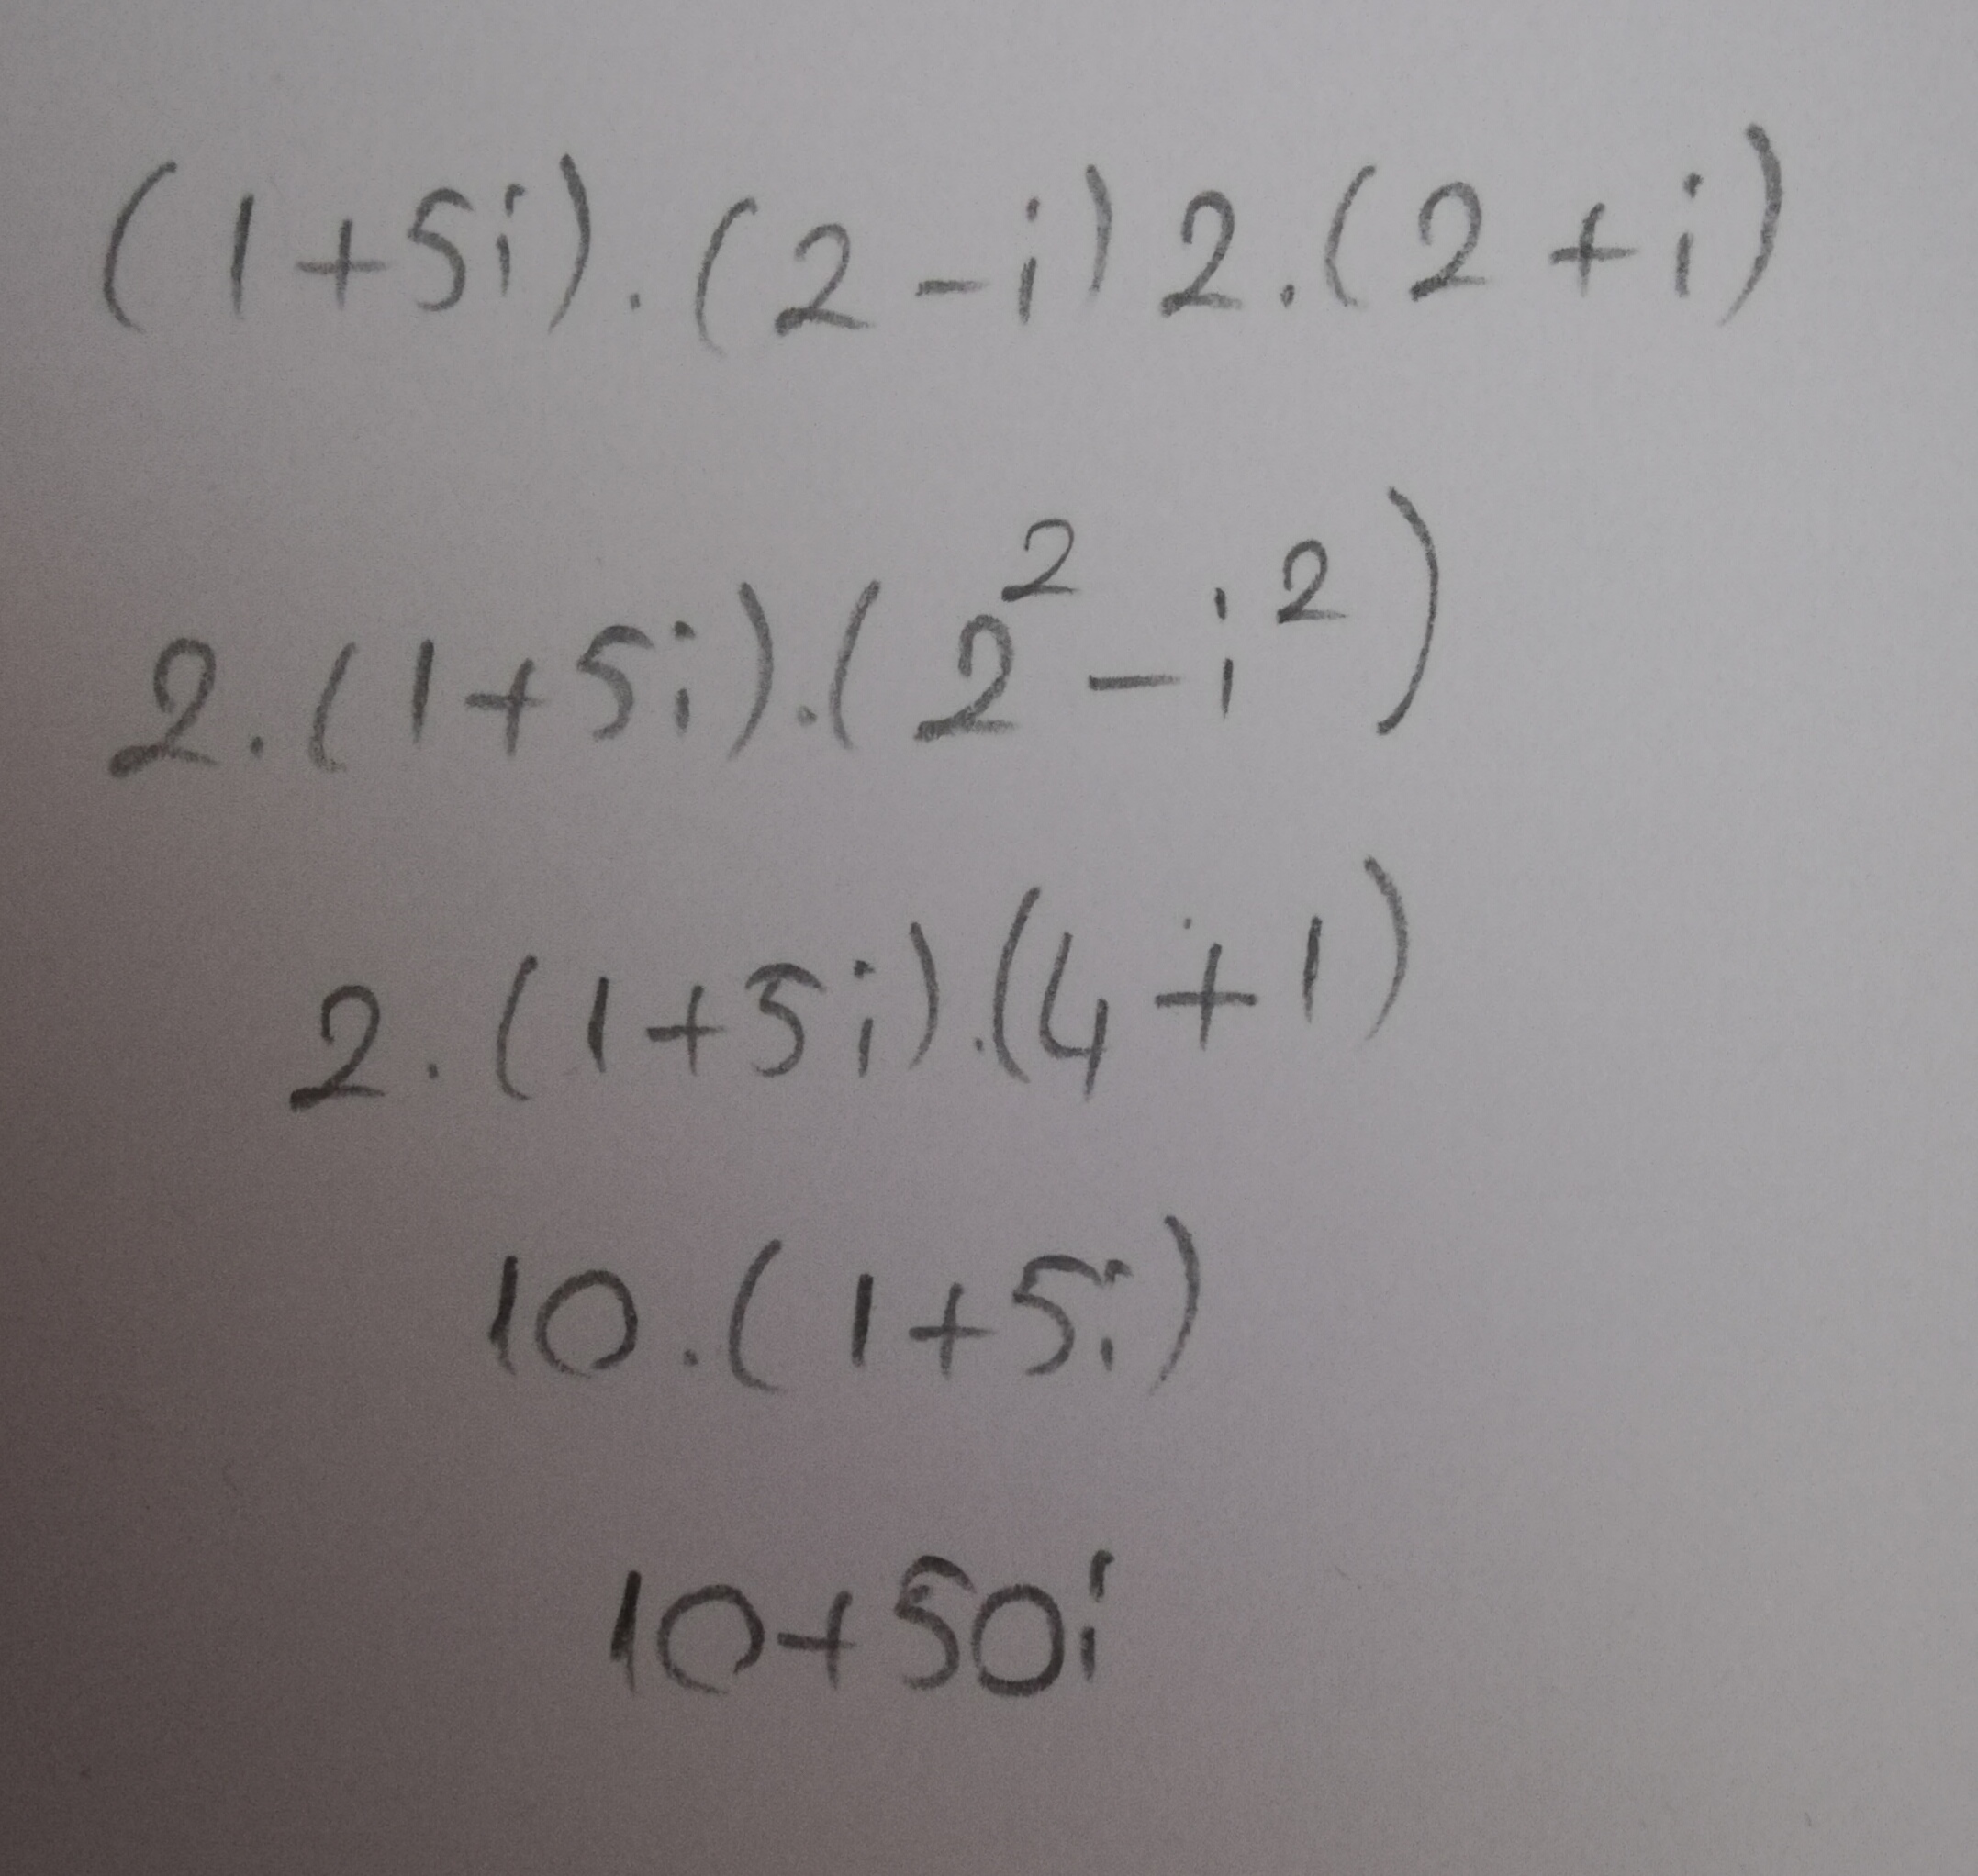 (1+5i).(2-i)2.(2+i)
2.(1+5i).(2²-i²)
2.(1+5i).(4+1)
10.(1+5i)
10+50i